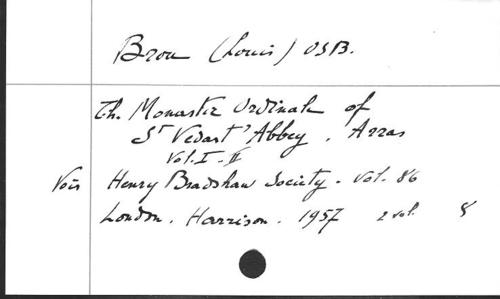 Brou (Louis) OSB.
Th. Monastic Ordinale of
St Vedast' Abbey, Arras
Vol. I - II
Voir Henry Bradshaw Society - Vol. 86
London. Harrison. 1957 2 vol. 8